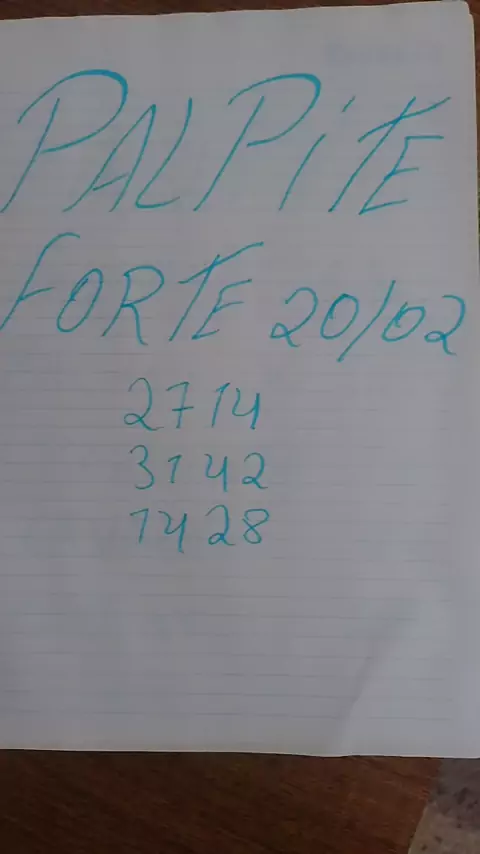 PALPiTE
FORTE 20/02
2714
3142
1428